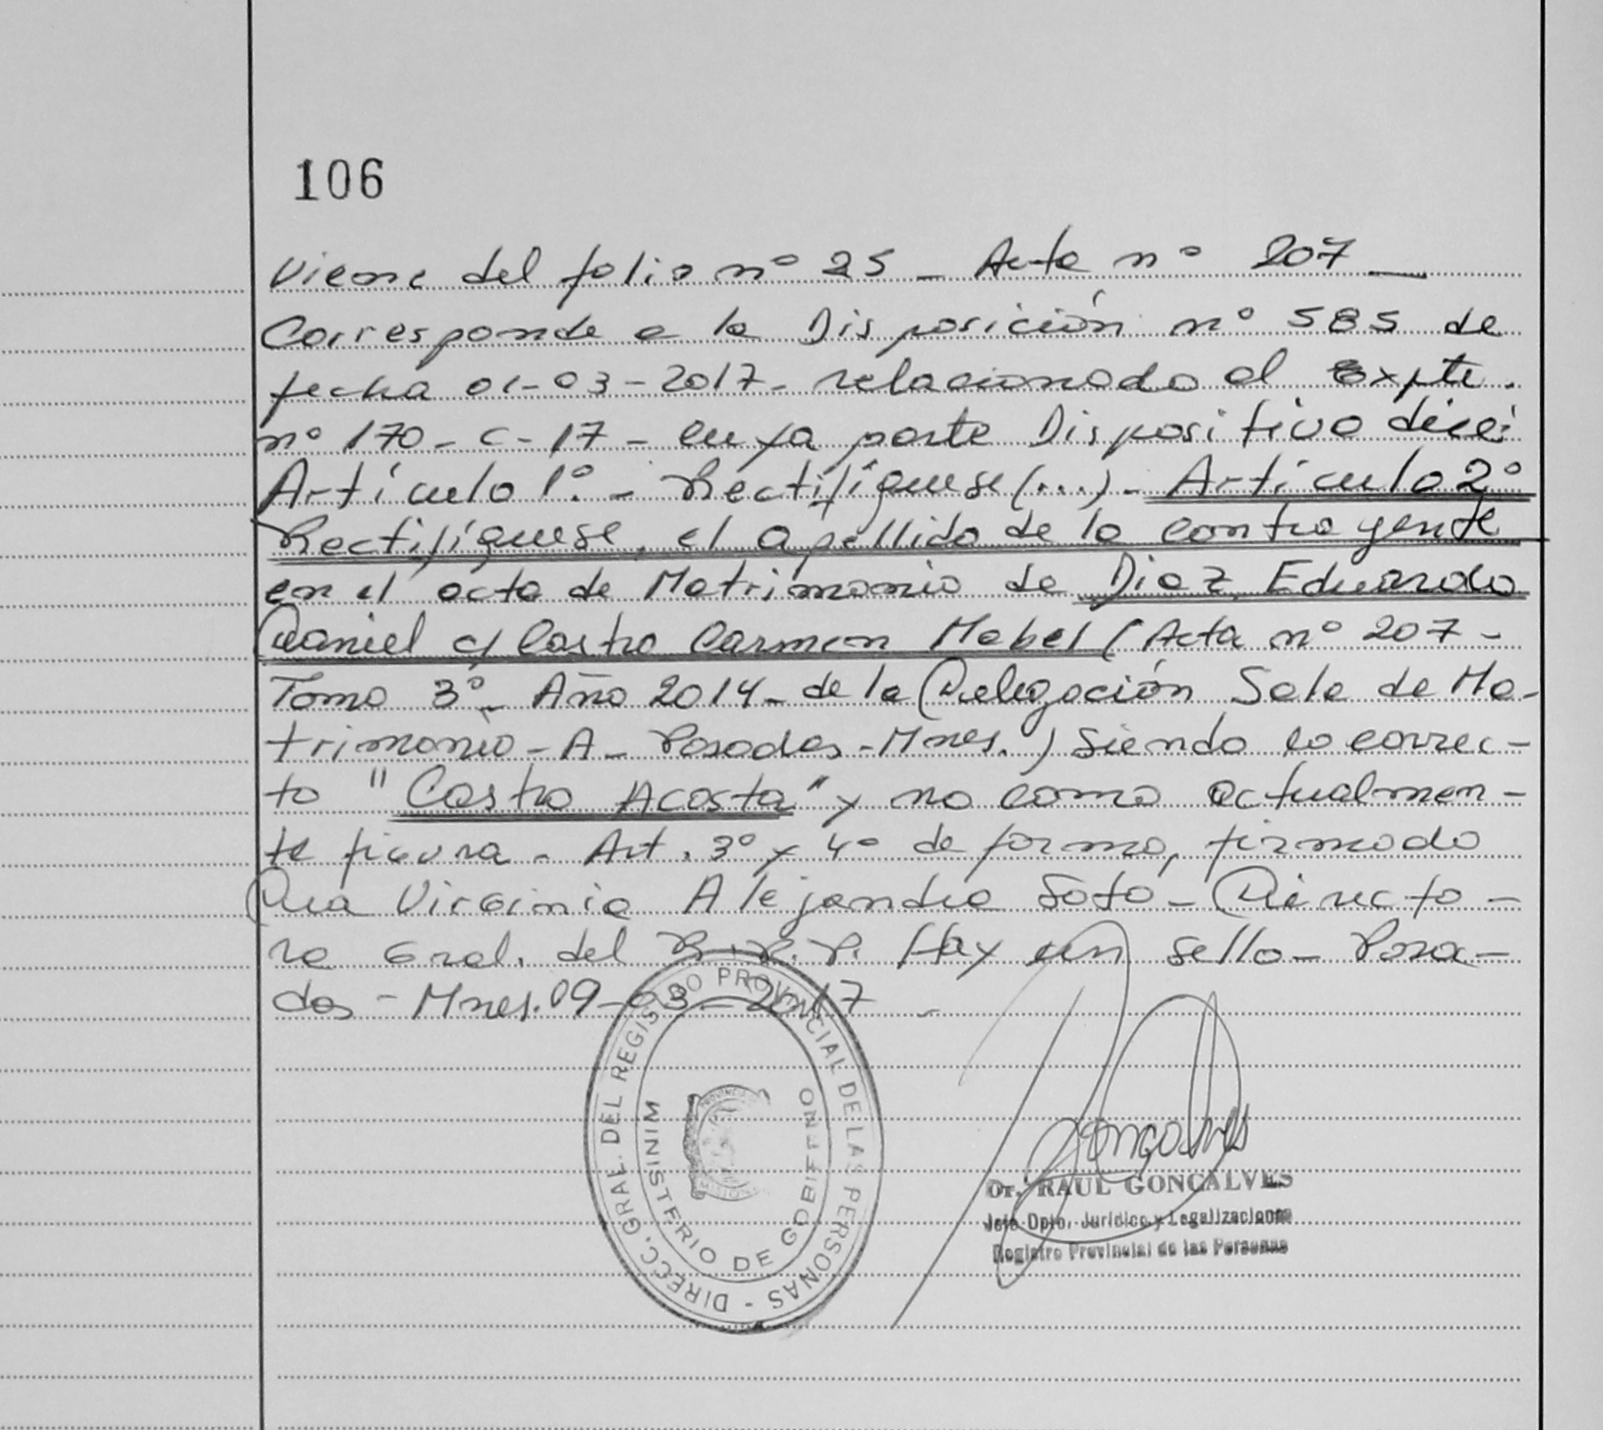 106
Viene del folio nº 25 - Acta nº 207
Corresponde a la Disposición nº 585 de
fecha 01-03-2017- relacionado al Expte.
nº 170-C-17- cuya parte Dispositiva dice:
Artículo 1º.- Rectifíquese (...)- Artículo 2º
Rectifíquese, el apellido de la contrayente
en el acta de Matrimonio de Diaz Eduardo
Daniel c/ Castro Carmen Mabel (Acta nº 207-
Tomo 3º- Año 2014- de la Delegación Sala de Ma-
trimonio-A- Posadas-Mnes.) Siendo lo correc-
to "Castro Acosta" y no como actualmen-
te figura. Art. 3º y 4º de forma, firmado
Dra Virginia Alejandra Soto- Directo-
ra Gral. del R.P.P. Hay un sello- Posa-
das - Mnes. 09-03-2017 -
DIRECC. GRAL. DEL REGISTRO PROVINCIAL DE LAS PERSONAS -
MINISTERIO DE GOBIERNO
Goncalves
Dr. RAUL GONCALVES
Jefe Dpto. Jurídico y Legalizaciones
Registro Provincial de las Personas